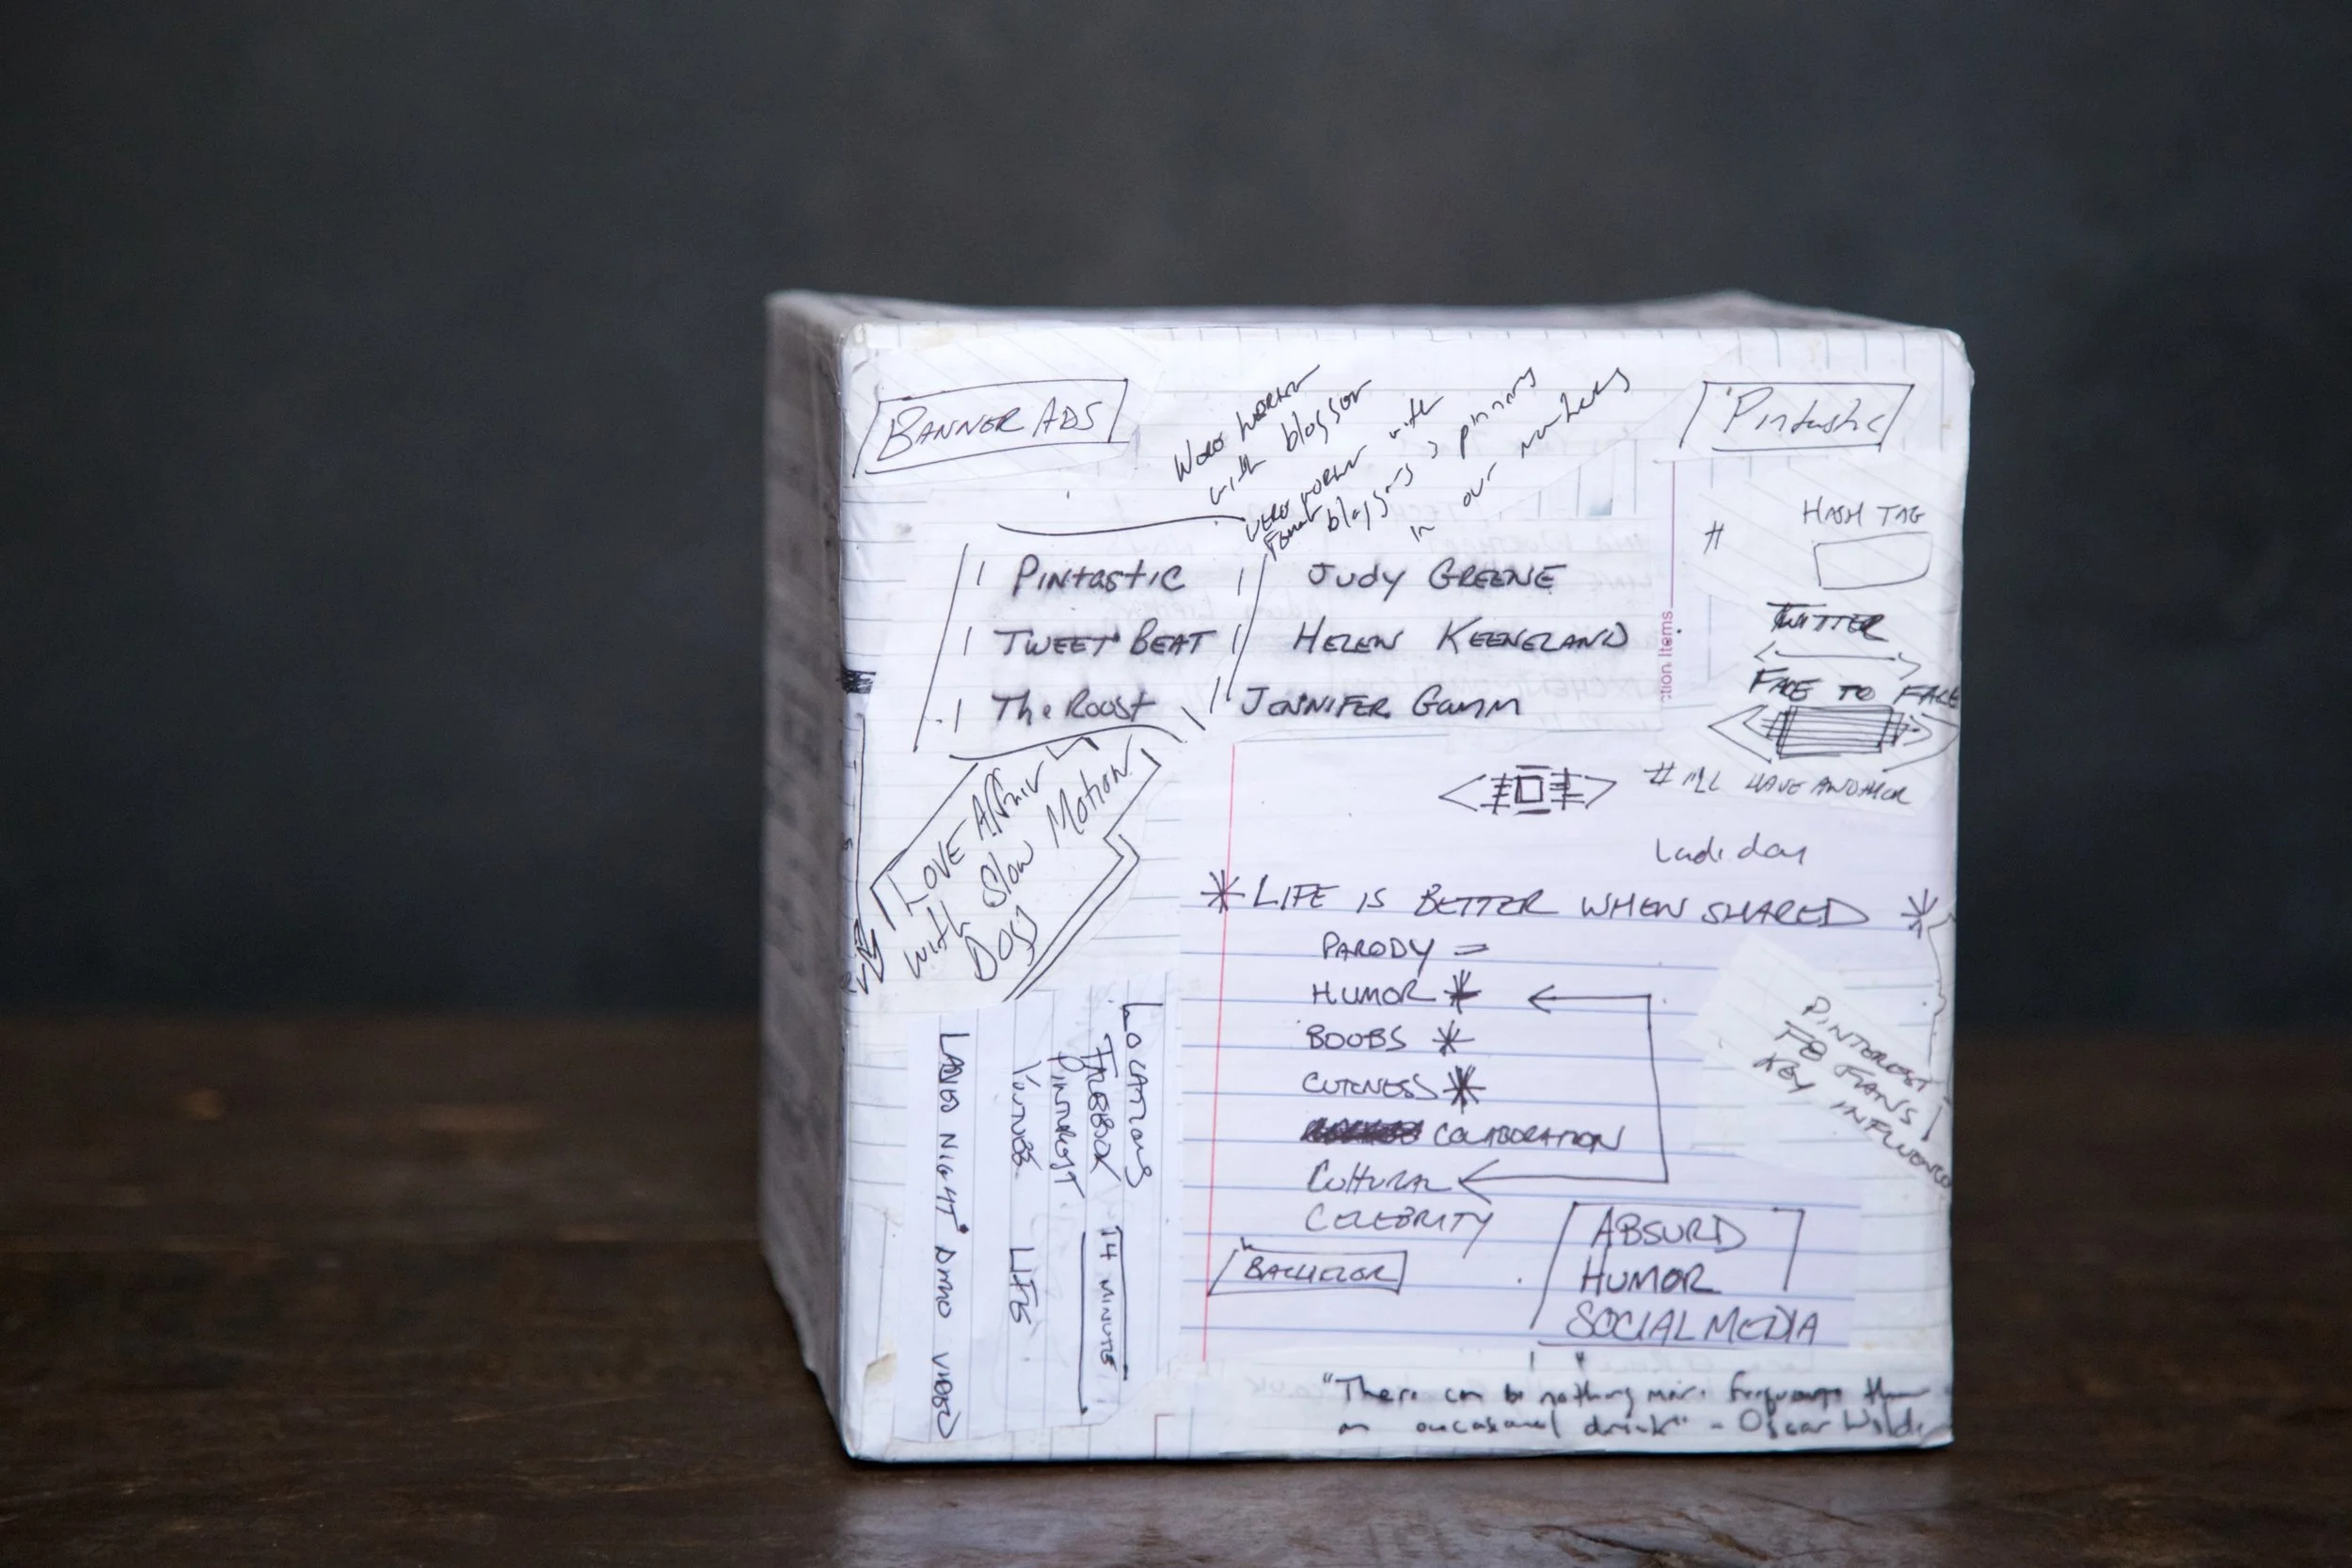 BANNER ADS
with blogger
with
in our numbers
'Pintastic
# HASH TAG
TWITTER
FACE TO FACE
# I'LL HAVE ANOTHER
Pintastic Judy GREENE
TWEET BEAT HELEN KEENELAND
The Roost JENNIFER Gamm
ction Items
LOVE Affair
with Slow Motion
Dogs
Ladi day
* LIFE IS BETTER WHEN SHARED *
PARODY =
HUMOR *
BOOBS *
CUTENESS *
COLABORATION
CULTURAL
CELEBRITY
BACHELOR
ABSURD
HUMOR
SOCIAL MEDIA
PINTEREST
FB FANS
KEY INFLUENCE
LOCATIONS
FACEBOOK
PINTEREST
YOUTUBE LIFE
14 MINUTES
LADIES NIGHT DEMO VIDEO
"There can be nothing more frequent than
an occasional drink" - Oscar Wilde